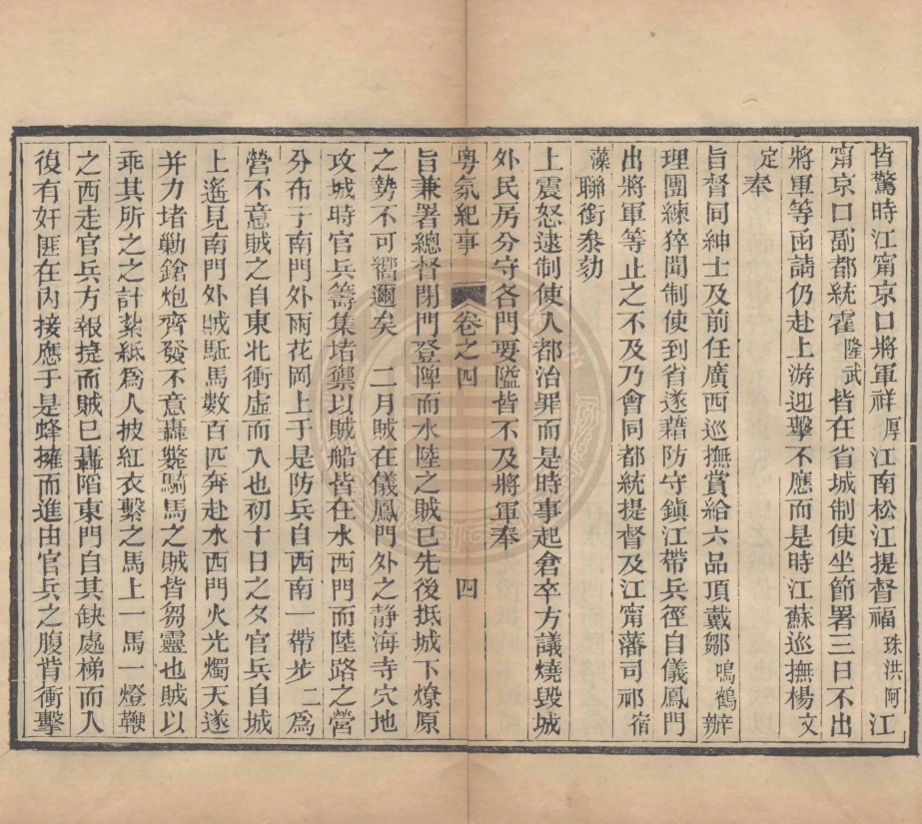 皆驚時江甯京口將軍祥厚江南松江提督福珠洪阿江
甯京口副都統霍隆武皆在省城制使坐節署三日不出
將軍等函請仍赴上游迎擊不應而是時江蘇巡撫楊文
定奉
旨督同紳士及前任廣西巡撫賞給六品頂戴鄒鳴鶴辦
理團練猝聞制使到省遂藉防守鎮江帶兵徑自儀鳳門
出將軍等止之不及乃會同都統提督及江甯藩司祁宿
藻聯銜叅劾
上震怒逮制使入都治罪而是時事起倉卒方議燒毀城
外民房分守各門要隘皆不及將軍奉
粵氛紀事 卷之四 四
旨兼署總督閉門登陴而水陸之賊巳先後抵城下燎原
之勢不可嚮邇矣 二月賊在儀鳳門外之靜海寺穴地
攻城時官兵籌集堵禦以賊船皆在水西門而陸路之營
分布于南門外雨花岡上于是防兵自西南一帶步二爲
營不意賊之自東北衝虛而入也初十日之夕官兵自城
上遙見南門外賊駈馬數百匹奔赴水西門火光燭天遂
并力堵勦鎗炮齊發不意轟斃騎馬之賊皆芻靈也賊以
乖其所之之計紥紙爲人披紅衣繫之馬上一馬一燈鞭
之西走官兵方報捷而賊巳轟陷東門自其缺處梯而入
復有奸匪在內接應于是蜂擁而進由官兵之腹背衝擊